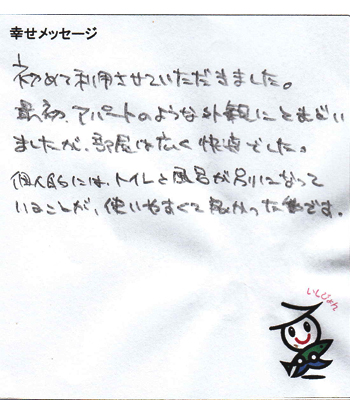 幸せメッセージ
初めて利用させていただきました。
最初、アパートのような外観にとまどい
ましたが、部屋は広く快適でした。
個人的には、トイレと風呂が別になって
いることが、使いやすくて良かった点です。